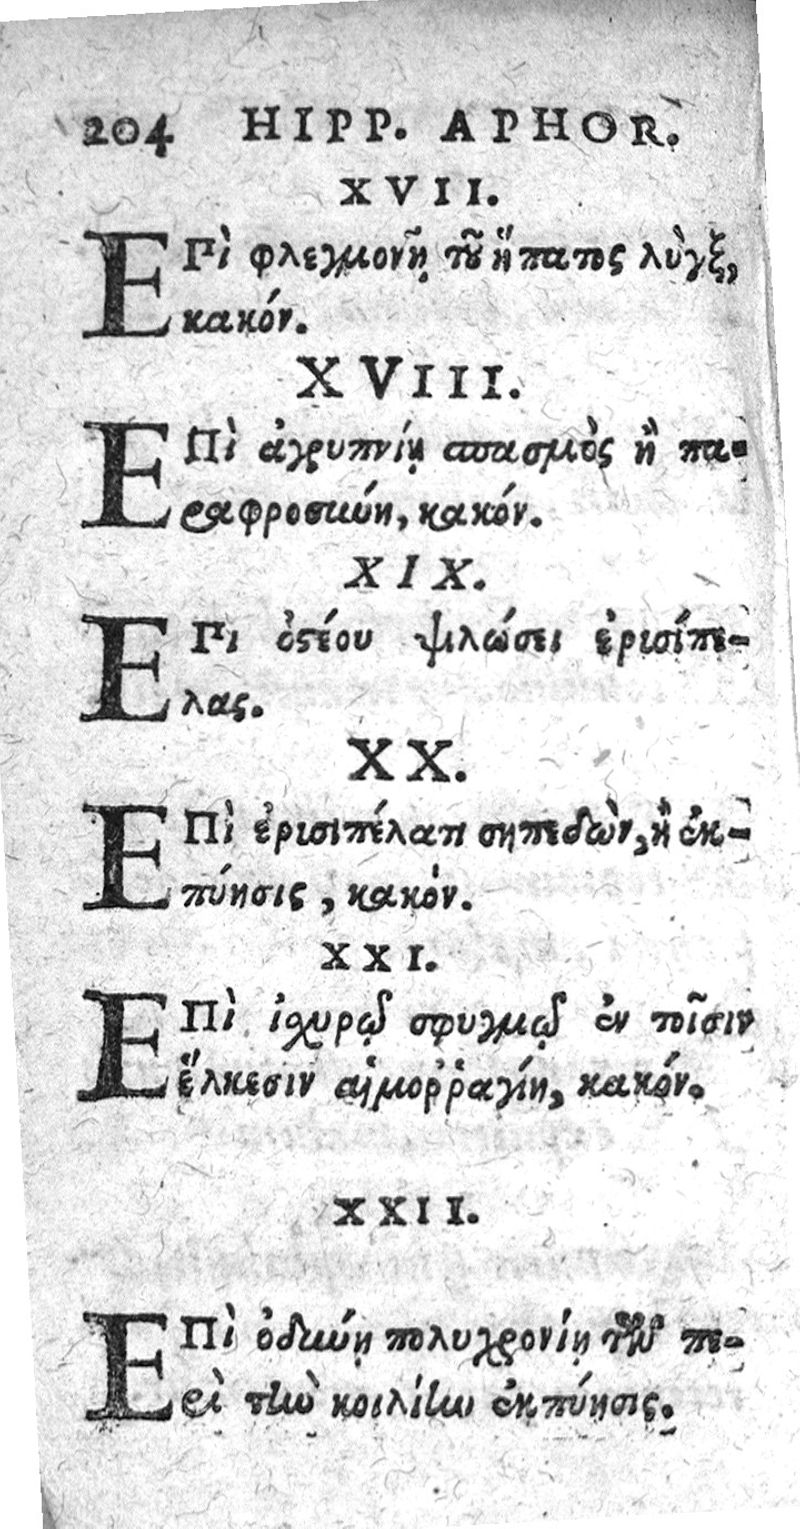 204 HIPP. APHOR.
XVII.
ΕΠὶ φλεγμονῇ τοῦ ἥπατος λὺγξ,
κακόν.
XVIII.
ΕΠὶ ἀγρυπνίῃ σπασμὸς ἢ πα-
ραφροσύνη, κακόν.
XIX.
ΕΠι ὀστέου ψιλώσει ἐρισίπε-
λας.
XX.
ΕΠὶ ἐρισιπέλατι σηπεδὼν, ἢ ἐκ-
πύησις, κακόν.
XXI.
ΕΠὶ ἰχυρῷ σφυγμῷ ἐν τοῖσιν
ἕλκεσιν αἱμοῤῥαγίη, κακόν.
XXII.
ΕΠὶ ὀδύνῃ πολυχρονίῃ τῶν πε-
ρὶ τὴν κοιλίην ἐκπύησις.